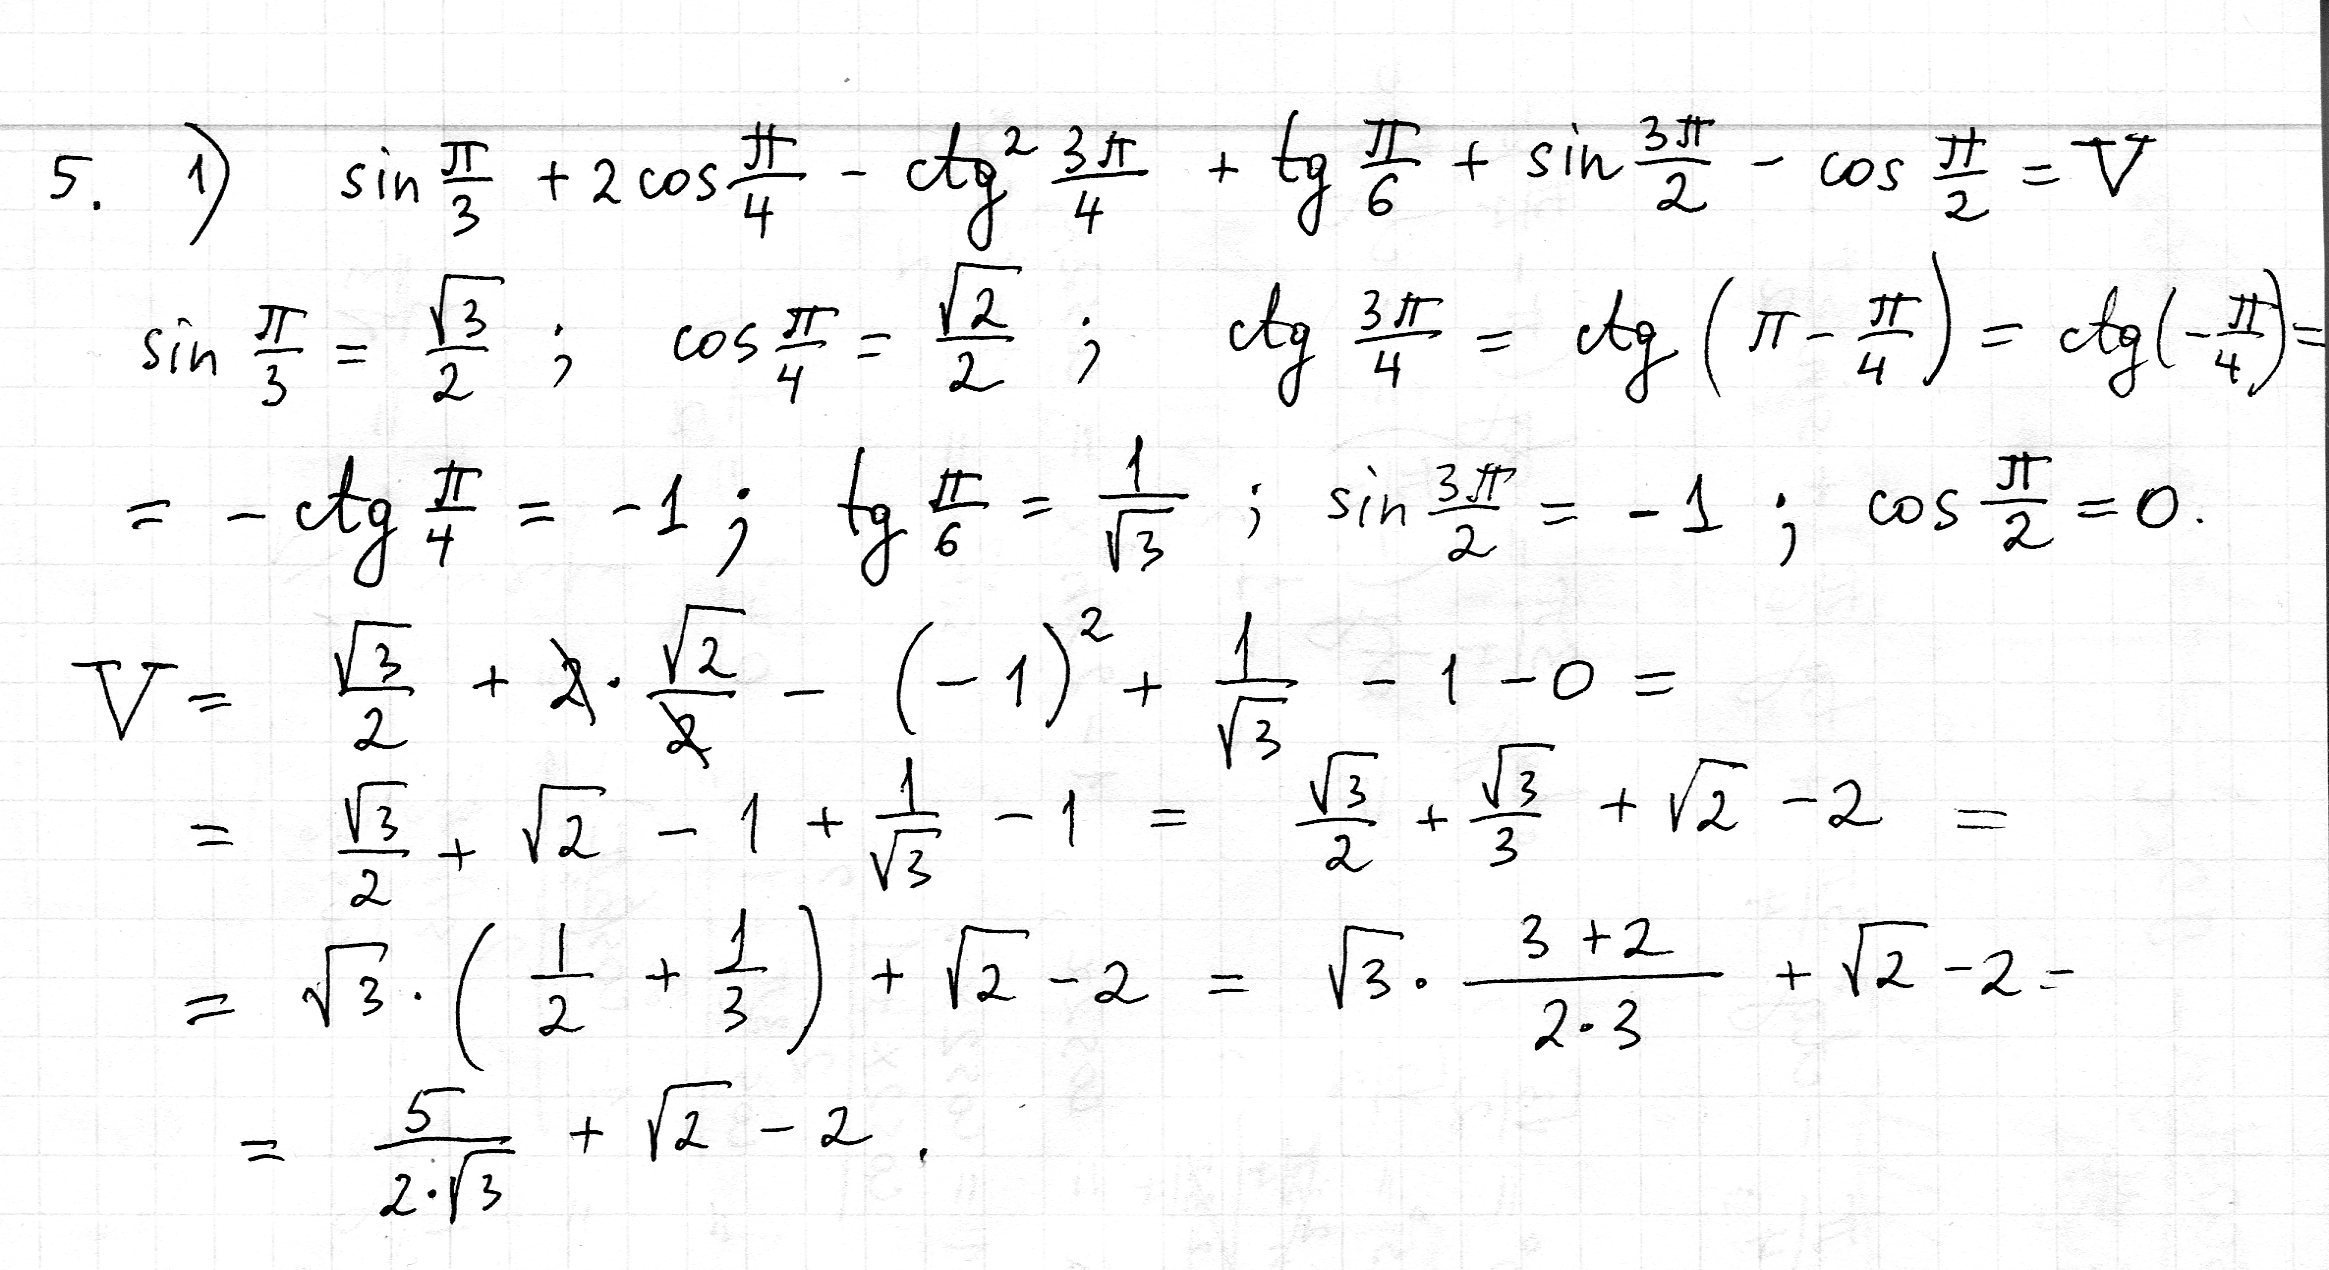 5. 1) sin π/3 + 2 cos π/4 - ctg² 3π/4 + tg π/6 + sin 3π/2 - cos π/2 = V
sin π/3 = √3/2 ; cos π/4 = √2/2 ; ctg 3π/4 = ctg (π - π/4) = ctg(-π/4) =
= - ctg π/4 = -1 ; tg π/6 = 1/√3 ; sin 3π/2 = -1 ; cos π/2 = 0.
V = √3/2 + 2 · √2/2 - (-1)² + 1/√3 - 1 - 0 =
= √3/2 + √2 - 1 + 1/√3 - 1 = √3/2 + √3/3 + √2 - 2 =
= √3 · (1/2 + 1/3) + √2 - 2 = √3 · (3+2)/(2·3) + √2 - 2 =
= 5/(2·√3) + √2 - 2 .